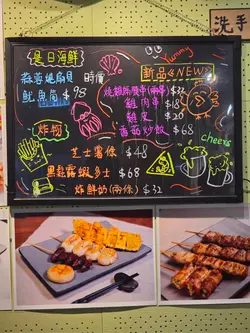 洗手
是日海鮮
蒜蓉燒扇貝 時價
魷魚筒 $98
炸物
芝士薯條 $48
黑松露蝦多士 $68
炸鮮奶(兩條) $32
Yummy
新品《NEW》
燒雞腎串(兩串) $32
雞肉串 $18
雞皮 $20
蕃茄炒飯 $68
cheers